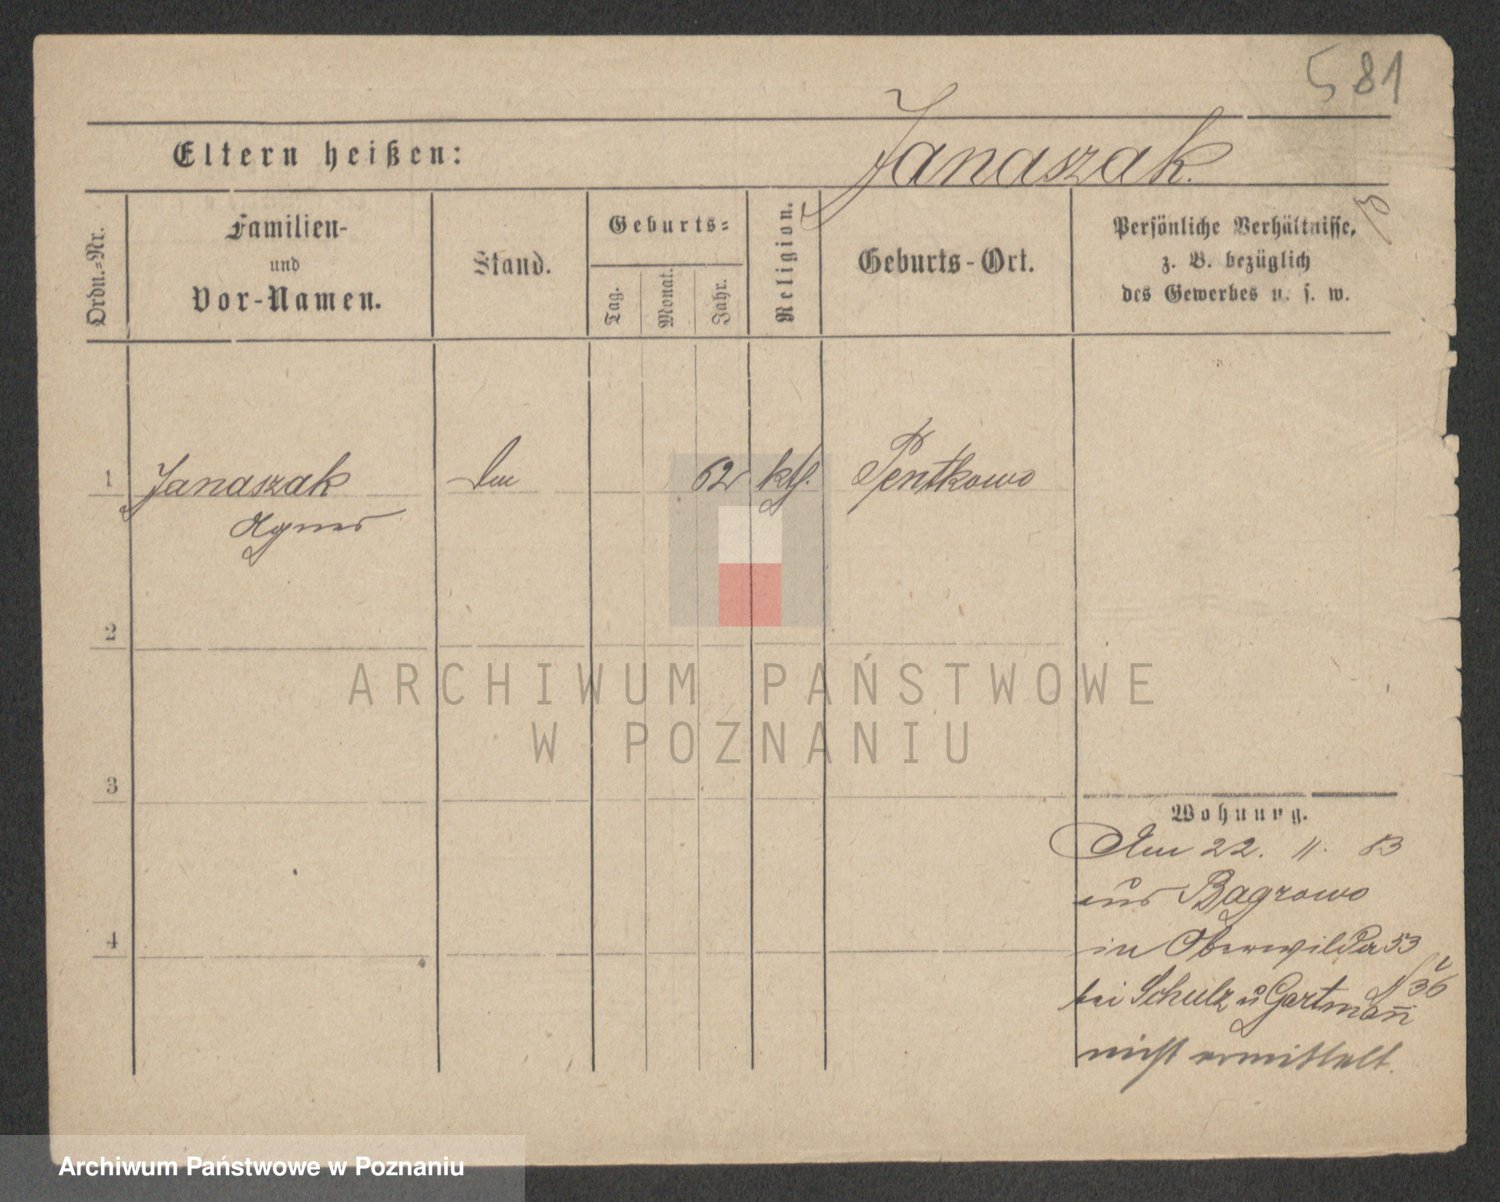 581
Janaszak.
Eltern heißen:
Ordn.-Nr.
Familien-
und
Vor-Namen.
Stand.
Geburts-
Tag.
Monat.
Jahr.
Religion.
Geburts-Ort.
Persönliche Verhältnisse,
z. B. bezüglich
des Gewerbes u. s. w.
1 Janaszak 62 kth. Pentkowo
Agnes
2
3
4
Wohnung.
Am 22. 11. 83
aus Bagrowo
in Oberwilda 53
bei Schulz u Gartmann
nicht ermittelt.
ARCHIWUM PAŃSTWOWE
W POZNANIU
Archiwum Państwowe w Poznaniu